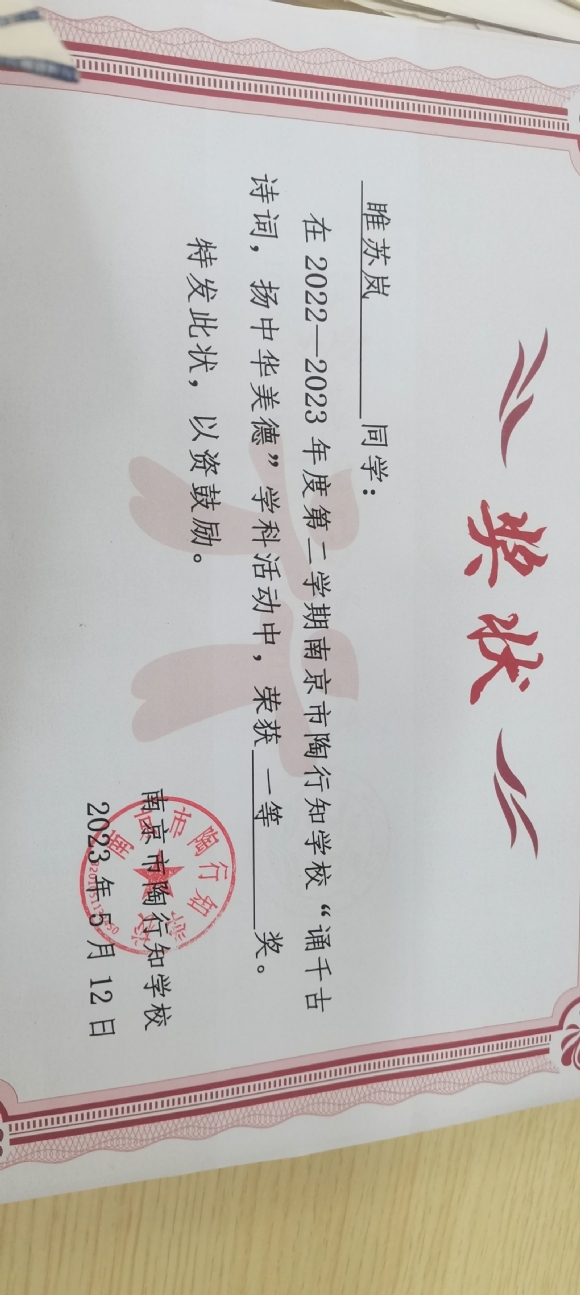 奖状
睢苏岚 同学：
在 2022—2023 年度第二学期南京市陶行知学校“诵千古
诗词，扬中华美德”学科活动中，荣获 一等 奖。
特发此状，以资鼓励。
南京市陶行知学校
2023 年 5 月 12 日